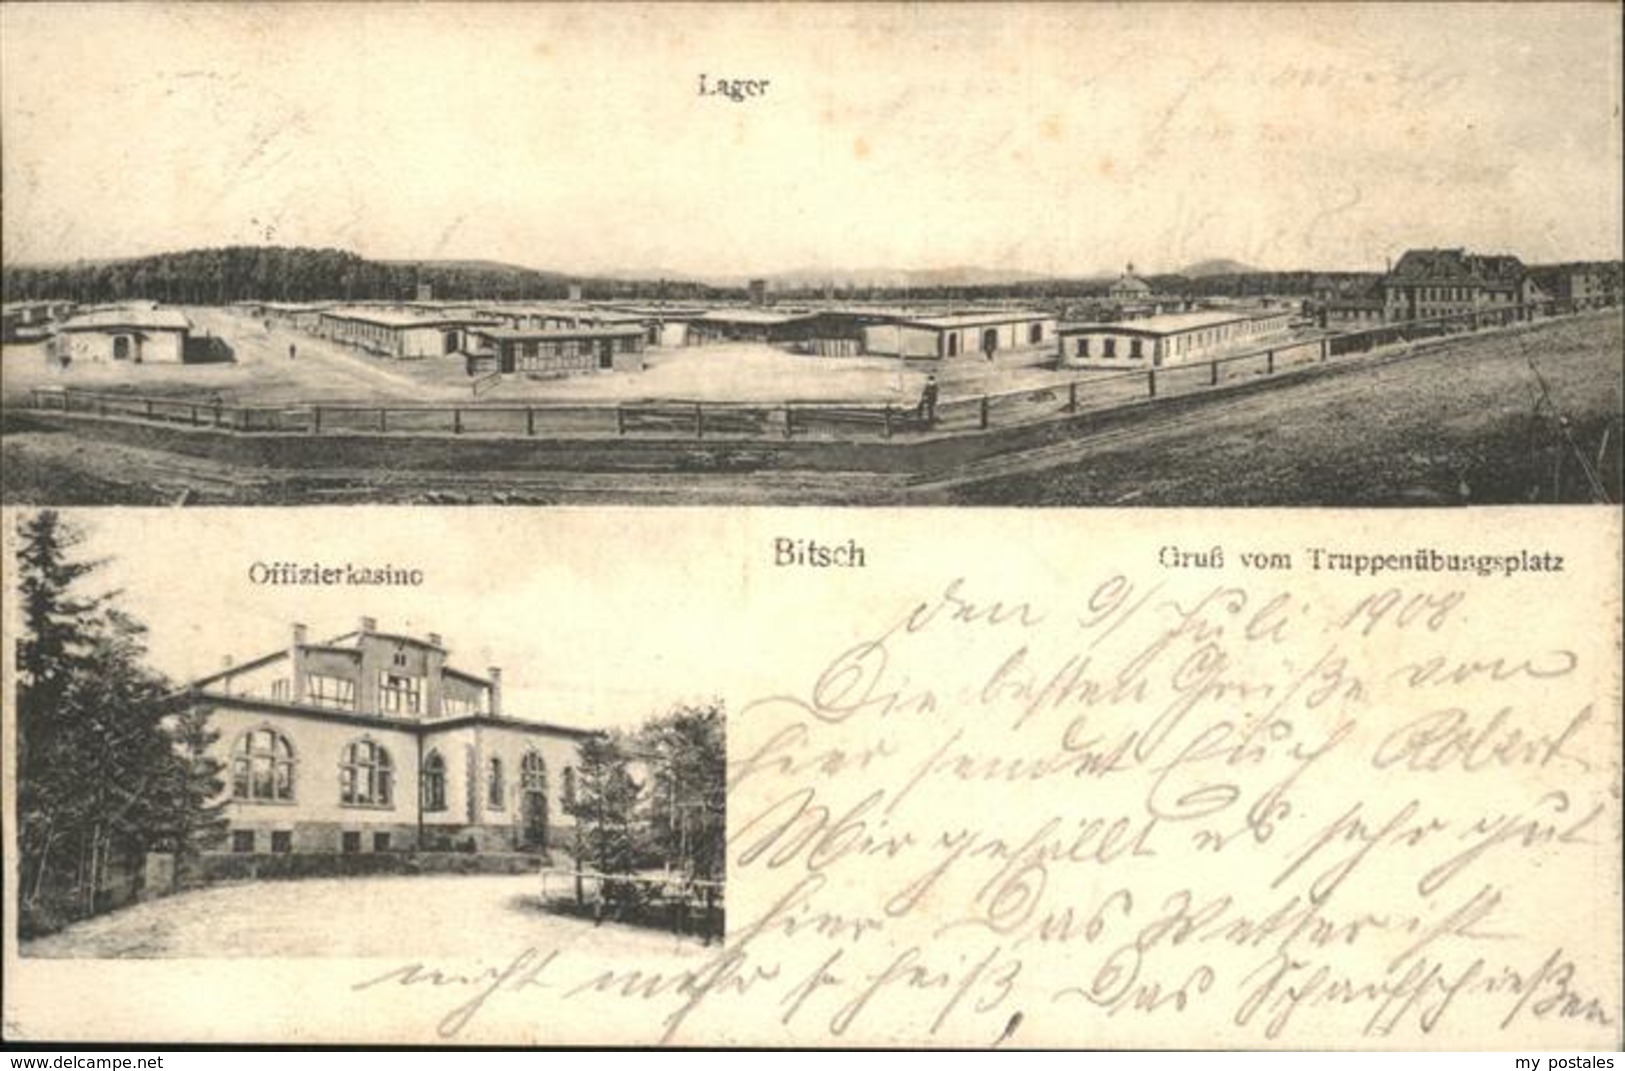 Lager
Offizierkasino
Bitsch
Gruß vom Truppenübungsplatz
den 9/ Juli 1908.
Die besten Grüße von
hier sendet Euch Robert
Mir gefällt es sehr gut
hier. Das Wetter ist
nicht mehr so heiß, Das Scharfschießen
www.delcampe.net
my_postales